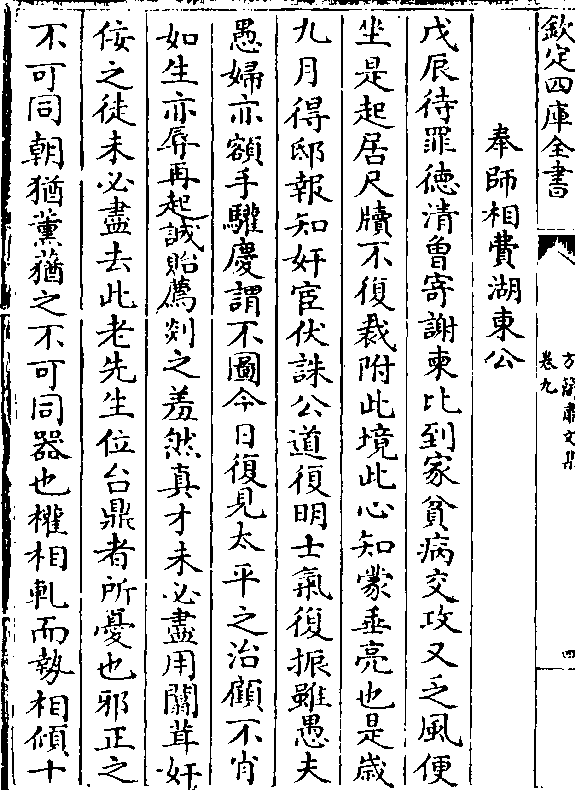 欽定四庫全書
方簡肅文集
卷九
四
奉師相費湖東公
戊辰待罪德清曾寄謝柬比到家貧病交攻又乏風便
坐是起居尺牘不復裁附此境此心知蒙垂亮也是歲
九月得邸報知奸宦伏誅公道復明士氣復振雖愚夫
愚婦亦額手驩慶謂不圖今日復見太平之治顧不肖
如生亦辱再起誠貽薦剡之羞然真才未必盡用闒茸奸
佞之徒未必盡去此老先生位台鼎者所憂也邪正之
不可同朝猶薰蕕之不可同器也權相軋而勢相傾十